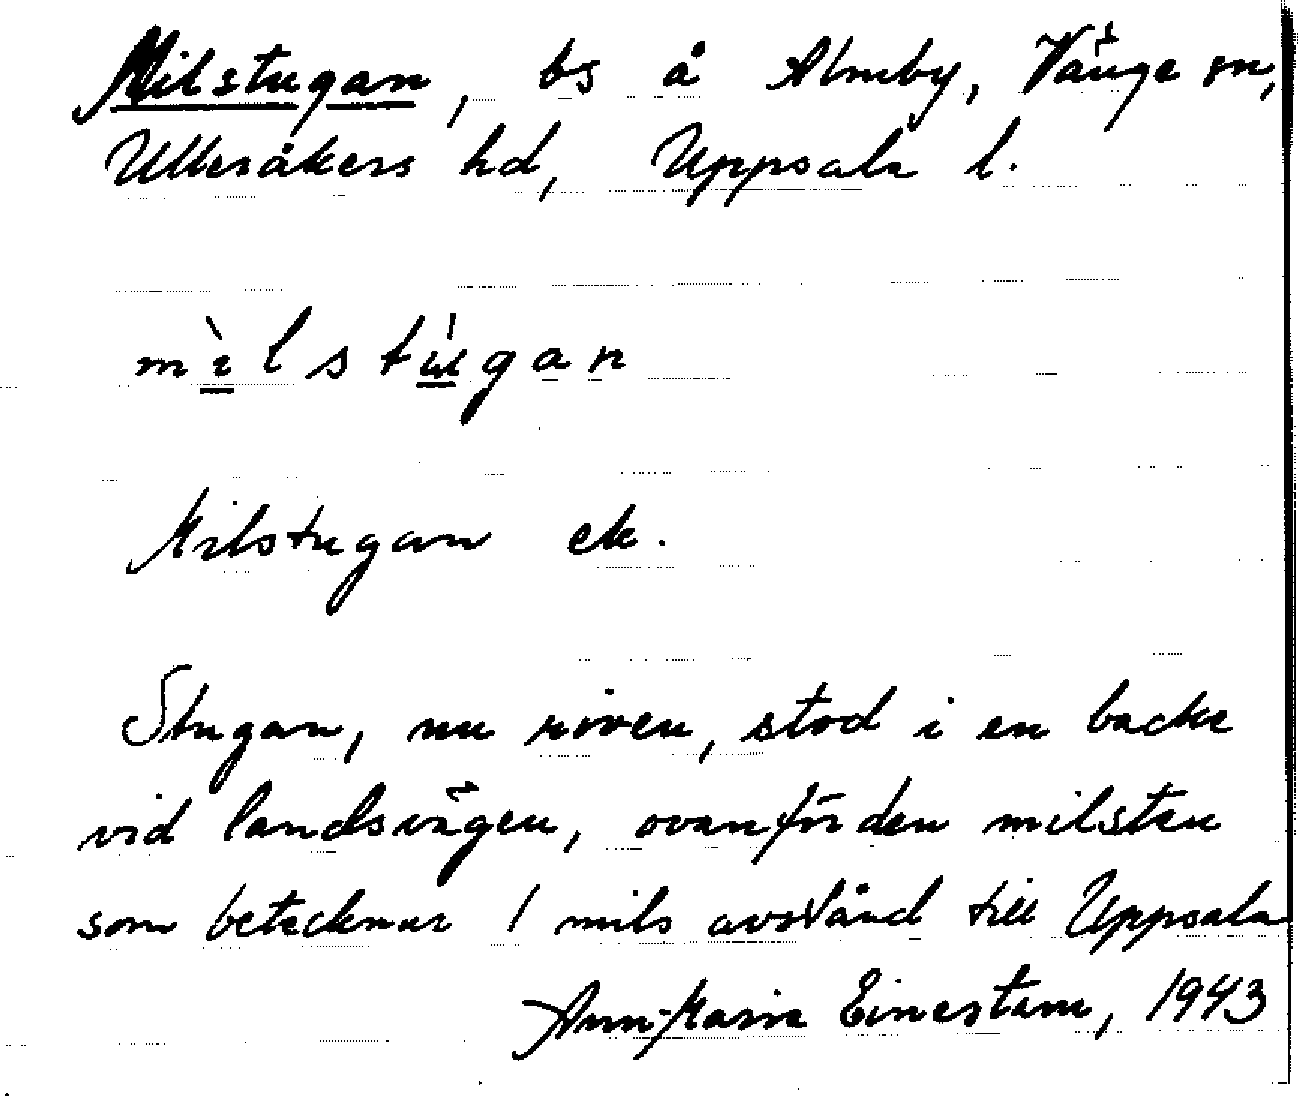 Milstugan, bs å Almby, Vänge sn,
Ulleråkers hd, Uppsala l.
mìlstúgan
Milstugan ek.
Stugan, nu riven, stod i en backe
vid landsvägen, ovanför den milsten
som betecknar 1 mils avstånd till Uppsala
Ann-Marie Einestam, 1943